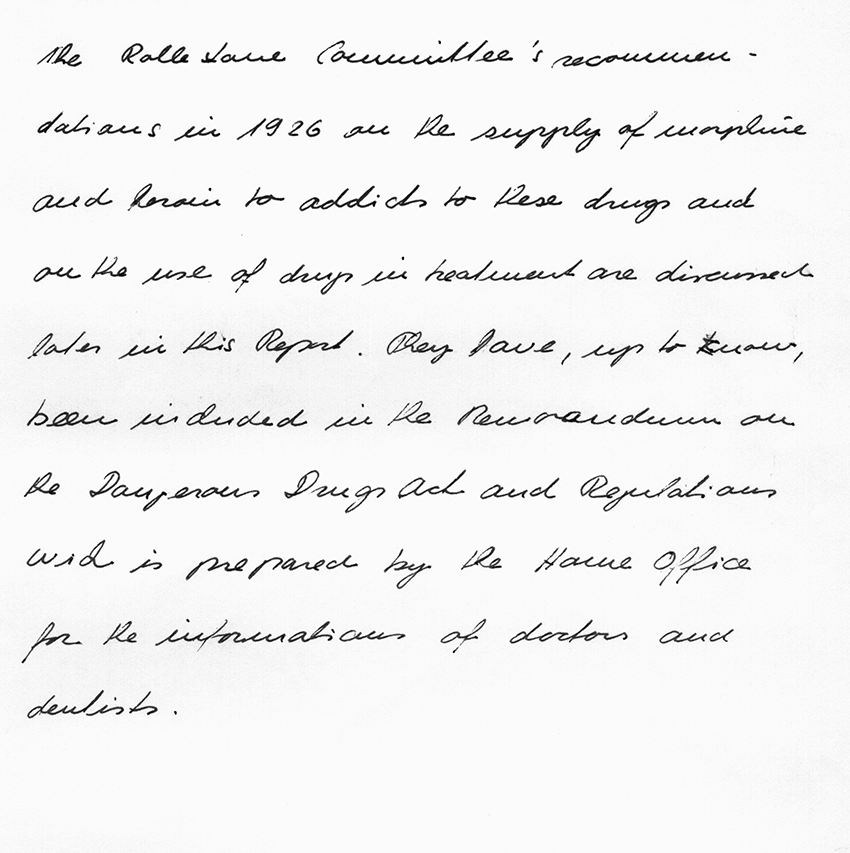 the Rollestone Committee's recommen-
dations in 1926 on the supply of morphine
and heroin to addicts to these drugs and
on the use of drugs in treatment are discussed
later in this Report. They have, up to know,
been included in the Memorandum on
the Dangerous Drugs Act and Regulations
wich is prepared by the Home Office
for the informations of doctors and
dentists.